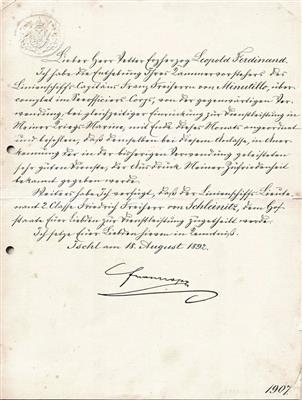 Lieber Herr Vetter Erzherzog Leopold Ferdinand.
Ich habe die Enthebung Ihres Kammervorstehers des
Linienschiffs-Capitäns Franz Freiherrn von Minutillo, über-
complet im Seeofficiers-Corps, von der gegenwärtigen Ver-
wendung, bei gleichzeitiger Einrückung zur Dienstleistung in
Meiner Kriegs-Marine, mit Ende dieses Monats angeordnet
und befohlen, daß demselben bei diesem Anlasse, in Aner-
kennung der in der bisherigen Verwendung geleisteten
sehr guten Dienste, der Ausdruck Meiner Zufriedenheit
bekannt gegeben werde.
Weiters habe Ich verfügt, daß der Linienschiffs-Lieute-
nant 2. Classe Friedrich Freiherr von Schleinitz, dem Hof-
staate Eier Liebden zur Dienstleistung zugetheilt werde.
Ich setze Eier Liebden hievon in Kenntniß.
Ischl am 18. August 1892.
1907